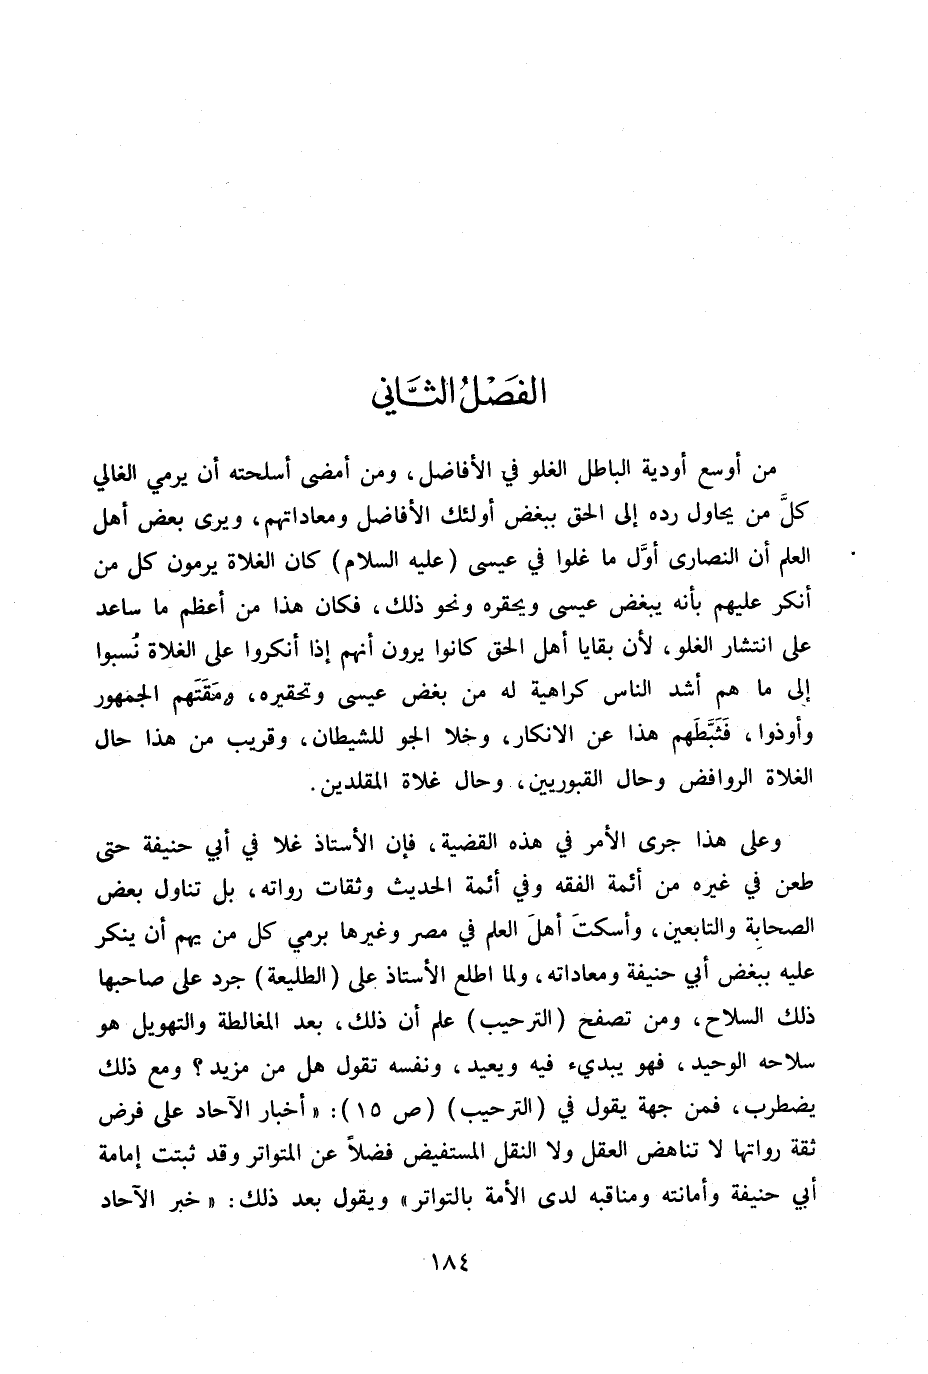 الفَصْلُ الثَّاني
من أوسع أودية الباطل الغلو في الأفاضل، ومن أمضى أسلحته أن يرمي الغالي
كلَّ من يحاول رده إلى الحق ببغض أولئك الأفاضل ومعاداتهم، ويرى بعض أهل
العلم أن النصارى أوَّل ما غلوا في عيسى (عليه السلام) كان الغلاة يرمون كل من
أنكر عليهم بأنه يبغض عيسى ويحقره ونحو ذلك، فكان هذا من أعظم ما ساعد
على انتشار الغلو، لأن بقايا أهل الحق كانوا يرون أنهم إذا أنكروا على الغلاة نُسبوا
إلى ما هم أشد الناس كراهية له من بغض عيسى وتحقيره، ومَقَتَهم الجمهور
وأوذوا، فَثَبَّطَهم هذا عن الانكار، وخلا الجو للشيطان، وقريب من هذا حال
الغلاة الروافض وحال القبوريين، وحال غلاة المقلدين.
وعلى هذا جرى الأمر في هذه القضية، فإن الأستاذ غلا في أبي حنيفة حتى
طعن في غيره من أئمة الفقه وفي أئمة الحديث وثقات رواته، بل تناول بعض
الصحابة والتابعين، وأسكتَ أهلَ العلم في مصر وغيرها برمي كل من يهم أن ينكر
عليه ببغض أبي حنيفة ومعاداته، ولما اطلع الأستاذ على (الطليعة) جرد على صاحبها
ذلك السلاح، ومن تصفح (الترحيب) علم أن ذلك، بعد المغالطة والتهويل هو
سلاحه الوحيد، فهو يبديء فيه ويعيد، ونفسه تقول هل من مزيد؟ ومع ذلك
يضطرب، فمن جهة يقول في (الترحيب) (ص ١٥): «أخبار الآحاد على فرض
ثقة رواتها لا تناهض العقل ولا النقل المستفيض فضلاً عن المتواتر وقد ثبتت إمامة
أبي حنيفة وأمانته ومناقبه لدى الأمة بالتواتر» ويقول بعد ذلك: «خبر الآحاد
١٨٤